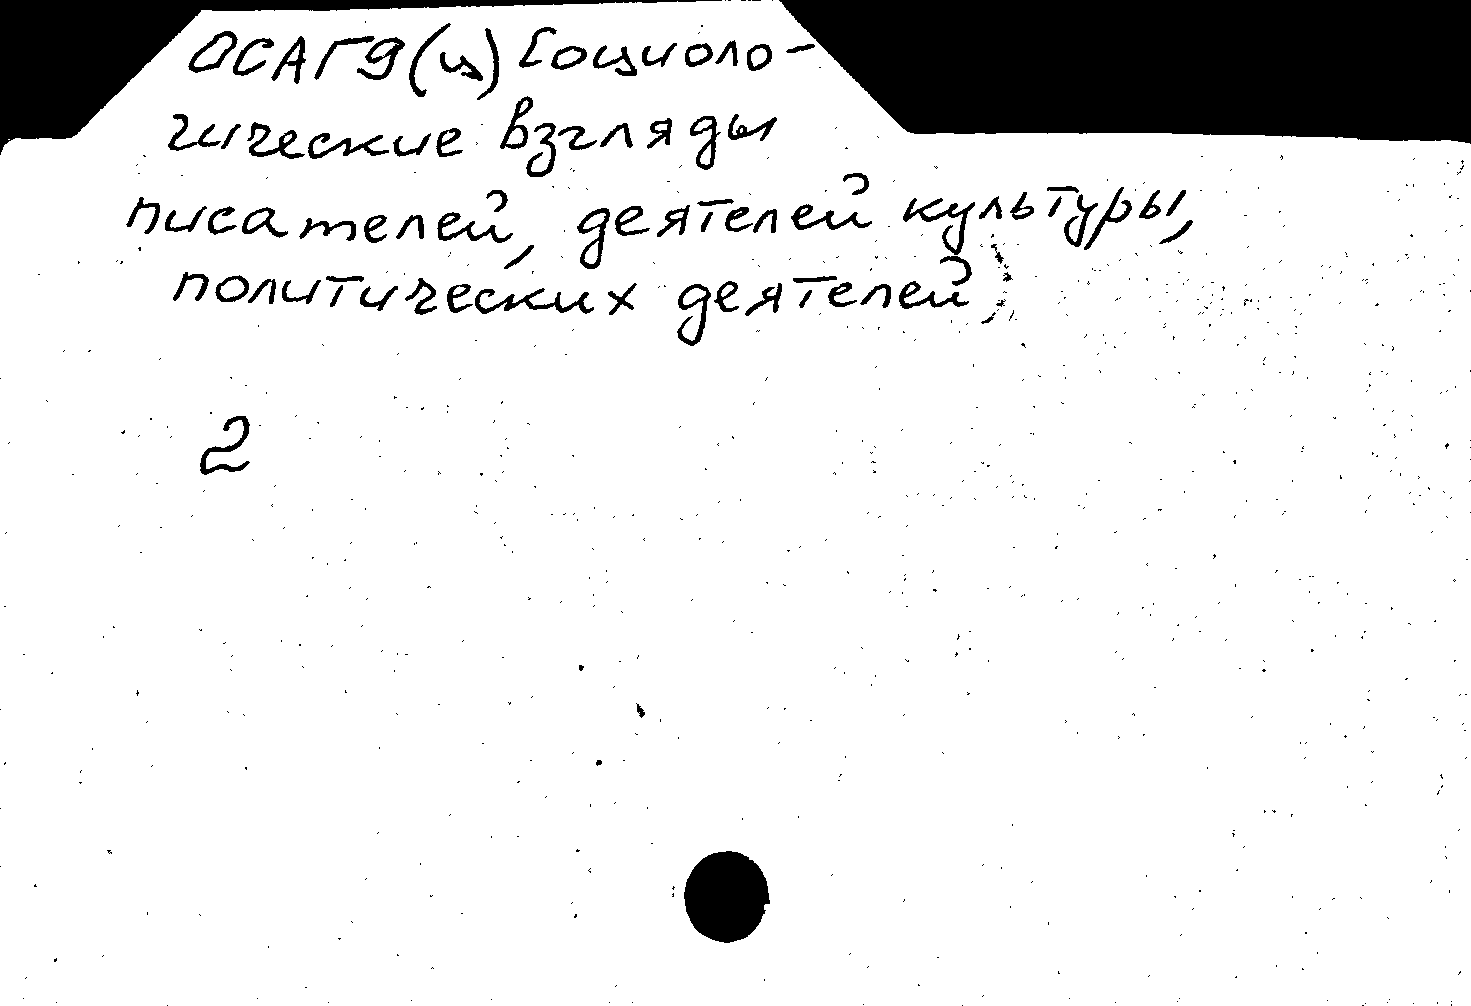 ОСАГ9(ц) Социоло-
гические взгляды
писателей, деятелей культуры,
политических деятелей)
2